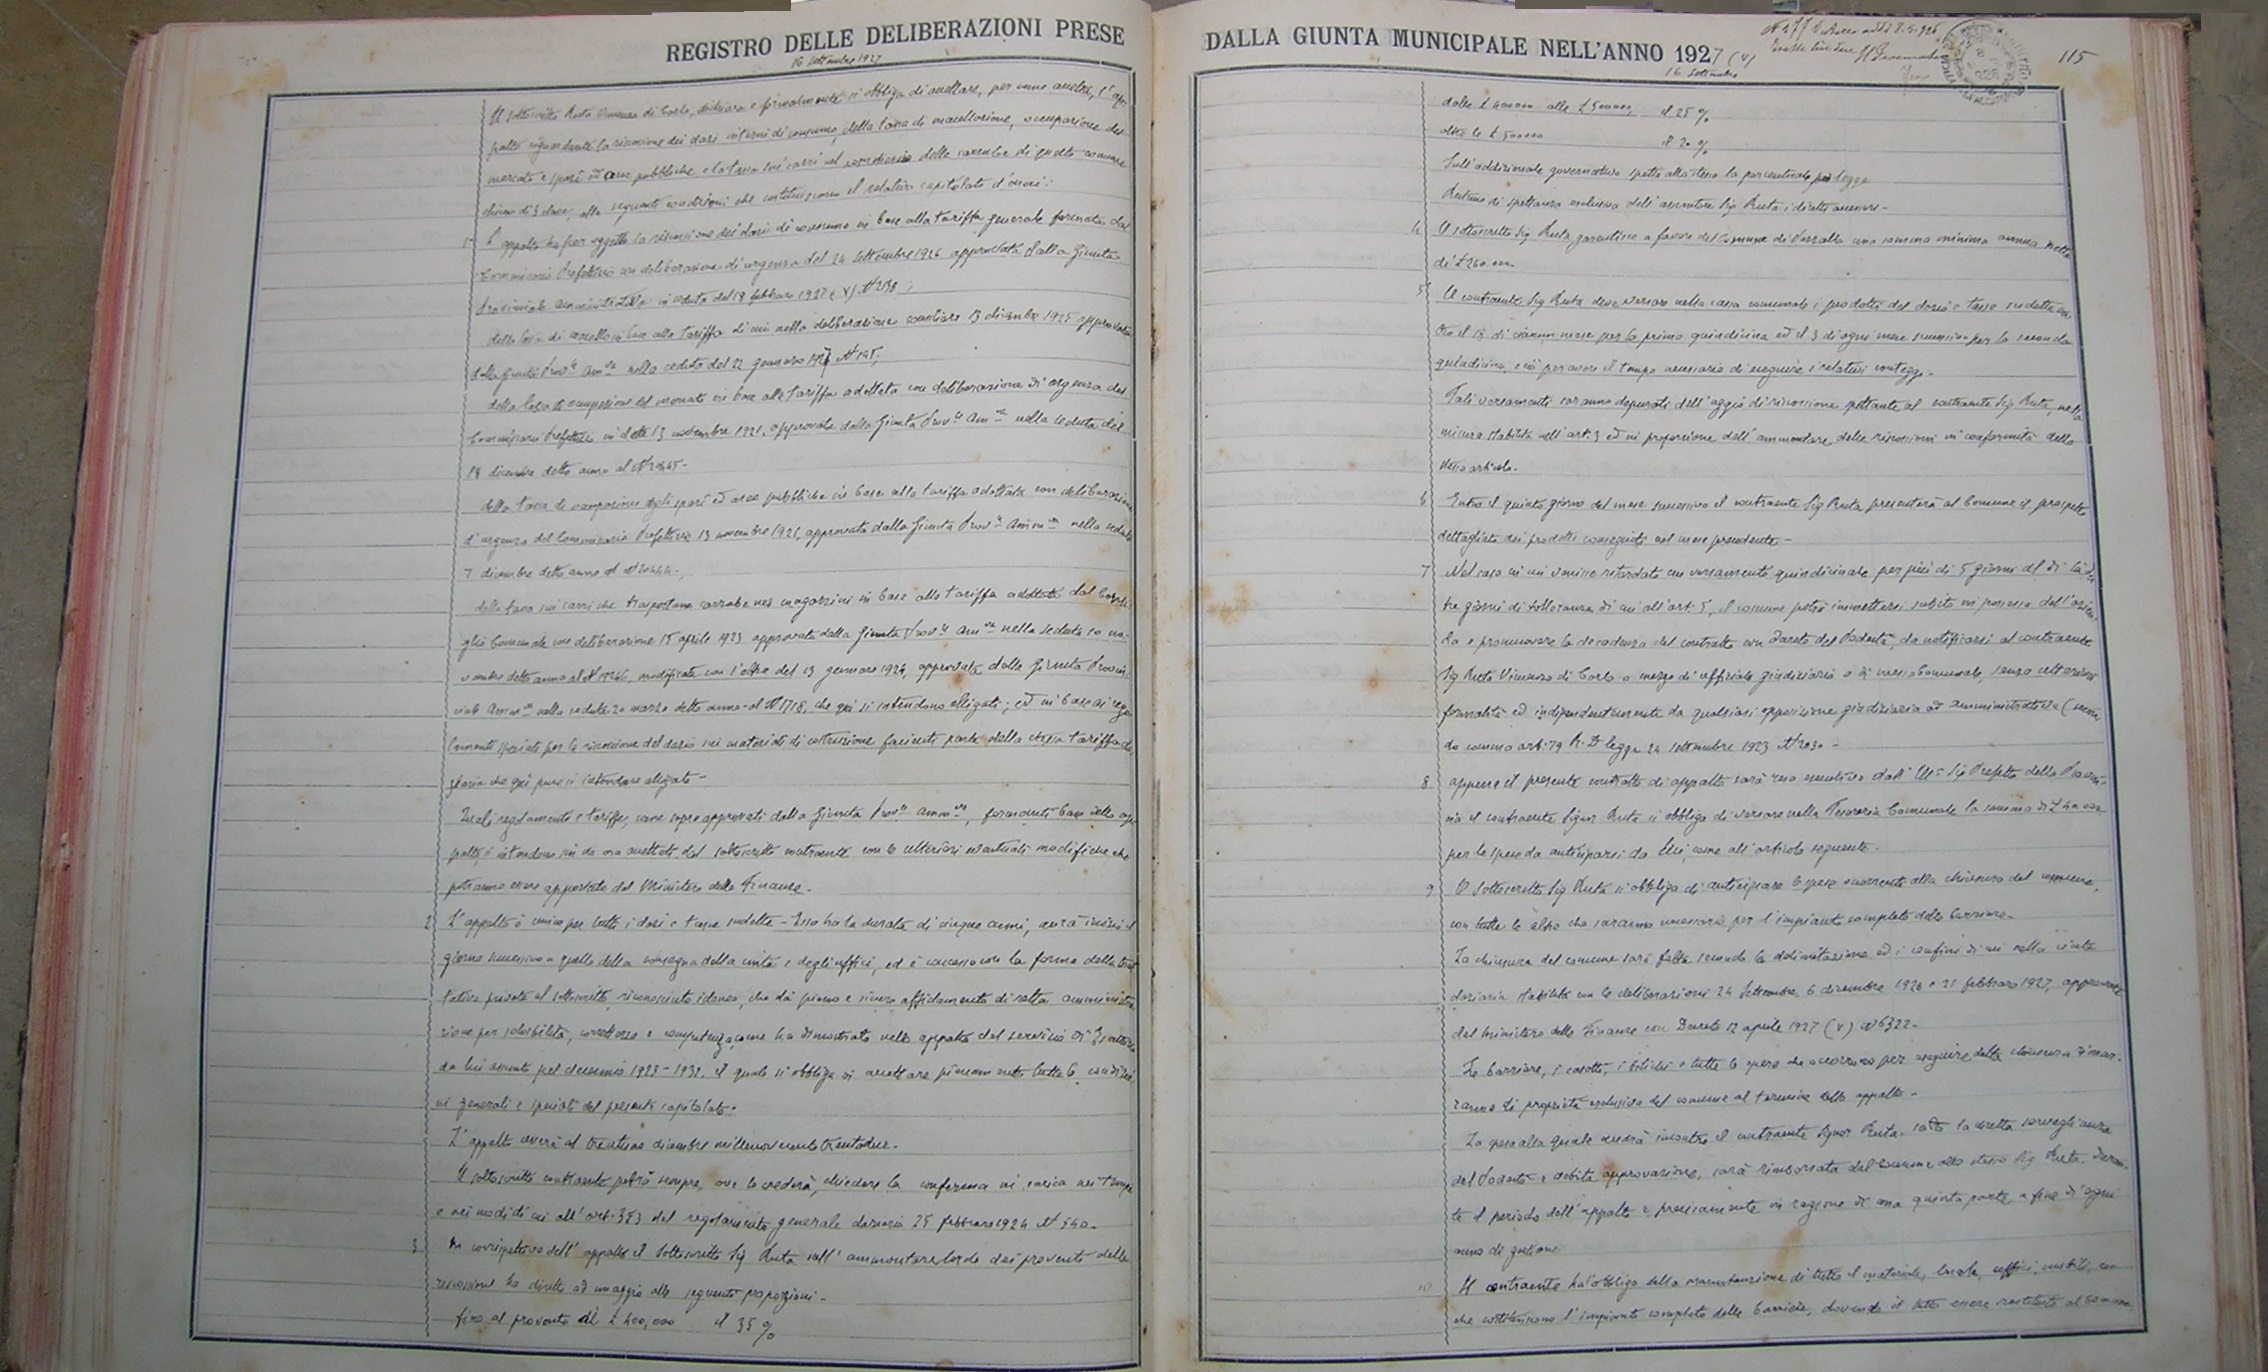 REGISTRO DELLE DELIBERAZIONI PRESE
16 Settembre 1927
Il sottoscritto Ruta Vincenzo di Carlo, dichiara e formalmente si obbliga di accettare, per come accetta, l'ap-
palto riguardante la riscossione dei dazi interni di consumo, della tassa di macellazione, occupazione del
mercato e spazi ed aree pubbliche e la tassa sui carri nel commercio delle carrube di questo comune
chiuso di 3 classe, alle seguenti condizioni che costituiscono il relativo capitolato d'oneri:
1 L'appalto ha per oggetto la riscossione dei dazii di consumo in base alla tariffa generale formata dal
Commissario Prefettizio con deliberazione di urgenza del 24 settembre 1926 approvata dalla Giunta
Provinciale amministrativa in seduta del 18 febbraio 1927 (V)
della tassa di macellazione in base alla tariffa di cui nella deliberazione consiliare 13 dicembre 1925 approvata
dalla Giunta Prov.le Amm.va nella seduta del 22 gennaio
della tassa di occupazione del mercato in base alla tariffa adottata con deliberazione di urgenza del
Commissario Prefettizio in data 13 novembre 1921, approvata dalla Giunta Prov.le Amm.va nella seduta del
18 dicembre detto anno al N
della tassa di occupazione degli spazi ed aree pubbliche in base alla tariffa adottata con deliberazione
d'urgenza del Commissario Prefettizio 13 novembre 1921, approvata dalla Giunta Prov.le Amm.va nella seduta
7 dicembre detto anno al N
della tassa sui carri che trasportano carrube nei magazzini in base alla tariffa adottata dal Consi-
glio Comunale con deliberazione 15 aprile 1923 approvata dalla Giunta Prov.le Amm.va nella seduta 10 no-
vembre detto anno al N modificata con l'altra del 13 gennaio 1924, approvata dalla Giunta Provin-
ciale Amm.va nella seduta 20 marzo detto anno al N 1718, che qui si intendono allegati; ed in base ai rego-
lamenti speciali per la riscossione del dazio sui materiali di costruzione facienti parte della stessa tariffa da-
ziaria che qui pure si intendono allegati -
Quali regolamenti e tariffe, come sopra approvati dalla Giunta Prov.le Amm.va, formanti base dello ap-
palto, si intendono sin da ora accettati dal sottoscritto contraente con le ulteriori eventuali modifiche che
potranno essere apportate dal Ministero delle Finanze -
2 L'appalto è unico per tutti i dazi e tasse sudette - Esso ha la durata di cinque anni, avrà inizio il
giorno successivo a quello della consegna della cinta e degli uffici, ed è concesso con la forma della trat-
tativa privata al sottoscritto, riconosciuto idoneo, che dà pieno e sicuro affidamento di retta amministra-
zione per solvibilità, correttezza e competenza, come ha dimostrato nello appalto del servizio di Esattoria
da lui assunto pel decennio 1923 - 1932, il quale si obbliga di accettare pienamente tutte le condizio-
ni generali e speciali del presente capitolato.
L'appalto cesserà al trentuno dicembre millenovecentotrentadue -
Il sottoscritto contraente potrà sempre, ove lo crederà, chiedere la conferma in carica nei tempi
e nei modi di cui all'art. 353 del regolamento generale daziario 25 febbraio 1924 N 540 -
3 In corrispettivo dell'appalto il sottoscritto Sig Ruta sull'ammontare lordo dei proventi della
riscossione ha diritto ad un aggio alle seguenti proporzioni -
fino al provento di £ 400,000 il 35 %
DALLA GIUNTA MUNICIPALE NELL'ANNO 1927 (V)
16 Settembre
115
dalle £ 400000 alle £ 500000, il 25 %
oltre le £ 500000 il 20 %
Sull'addizionale governativo spetta allo stesso la percentuale per legge
Restano di spettanza esclusiva dell'assuntore Sig Ruta i diritti accessori -
4 Il sottoscritto Sig Ruta, garentisce a favore del Comune di Vassallo una somma minima annua netta
di £ 260.000
5 Il contraente Sig Ruta deve versare nella cassa comunale i prodotti del dazio e tasse sudette en-
tro il 18 di ciascun mese per la prima quindicina ed il 3 di ogni mese successivo per la seconda
quindicina, e ciò per avere il tempo necessario di eseguire i relativi conteggi -
Tali versamenti saranno depurati dell'aggio di riscossione spettante al contraente Sig Ruta, nella
misura stabilita nell'art. 3 ed in proporzione dell'ammontare delle riscossioni in conformità dello
stesso articolo.
6 Entro il quinto giorno del mese successivo il contraente Sig Ruta presenterà al Comune il prospetto
dettagliato dei prodotti conseguiti nel mese precedente -
7 Nel caso in cui venisse ritardato un versamento quindicinale per più di 5 giorni al di là dei
tre giorni di tolleranza di cui all'art. 5, il comune potrà immettersi subito in possesso dell'azien-
da e promuovere la decadenza del contratto con Decreto del Podestà, da notificarsi al contraente
Sig Ruta Vincenzo di Carlo a mezzo di ufficiale giudiziario o di messo Comunale, senza ulteriori
formalità ed indipendentemente da qualsiasi opposizione giudiziaria od amministrativa (secon-
do comma art. 79 R. D legge 24 settembre 1923 N 2030 -
8 appena il presente contratto di appalto sarà reso esecutivo dall'Ill.mo Sig Prefetto della Provin-
cia il contraente Signor Ruta si obbliga di versare nella Tesoreria Comunale la somma di £
per le spese da anticiparsi da Lui, come all'articolo seguente -
9 Il Sottoscritto Sig Ruta si obbliga di anticipare le spese occorrenti alla chiusura del comune,
con tutte le altre che saranno necessarie per l'impianto completo delle barriere -
La chiusura del comune sarà fatta secondo la delimitazione ed i confini di cui nella cinta
daziaria stabilita con le deliberazioni 24 Settembre, 6 dicembre 1926 e 21 febbraio 1927, approvate
dal Ministero delle Finanze con Decreto 12 aprile 1927 (V) N 6322 -
Le barriere, i casotti, i bilichi e tutte le opere che occorrono per eseguire detta chiusura rimar-
ranno di proprietà esclusiva del comune al termine dello appalto -
La spesa alla quale andrà incontro il contraente Signor Ruta, sotto la diretta sorveglianza
del Podestà e debita approvazione, sarà rimborsata dal Comune allo stesso Sig Ruta, duran-
te il periodo dell'appalto e precisamente in ragione di una quinta parte a fine di ogni
anno di gestione
10 Il contraente ha l'obbligo della manutenzione di tutto il materiale, locale, uffici, mobili, ecc
che costituiscono l'impianto completo delle barriere, dovendo il tutto essere restituito al Comune